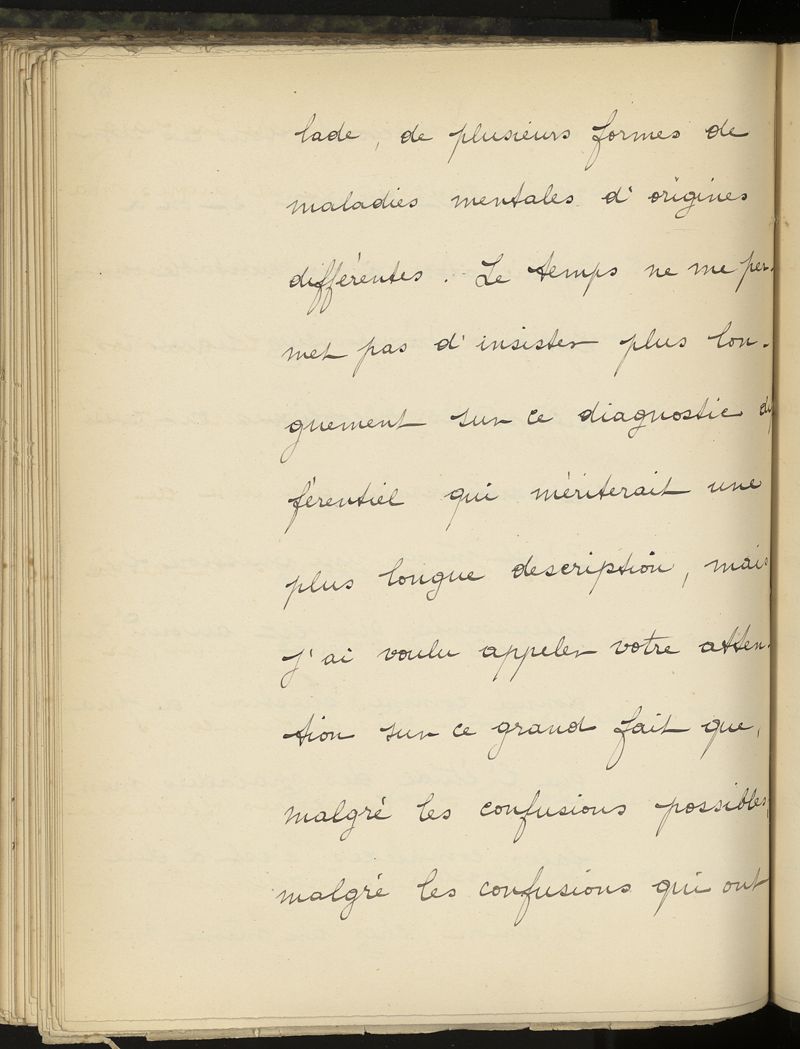 lade, de plusieurs formes de
maladies mentales d'origines
différentes. Le temps ne me per-
met pas d'insister plus lon-
guement sur ce diagnostic dif
férentiel qui mériterait une
plus longue description, mais
j'ai voulu appeler votre atten-
tion sur ce grand fait que,
malgré les confusions possibles,
malgré les confusions qui ont